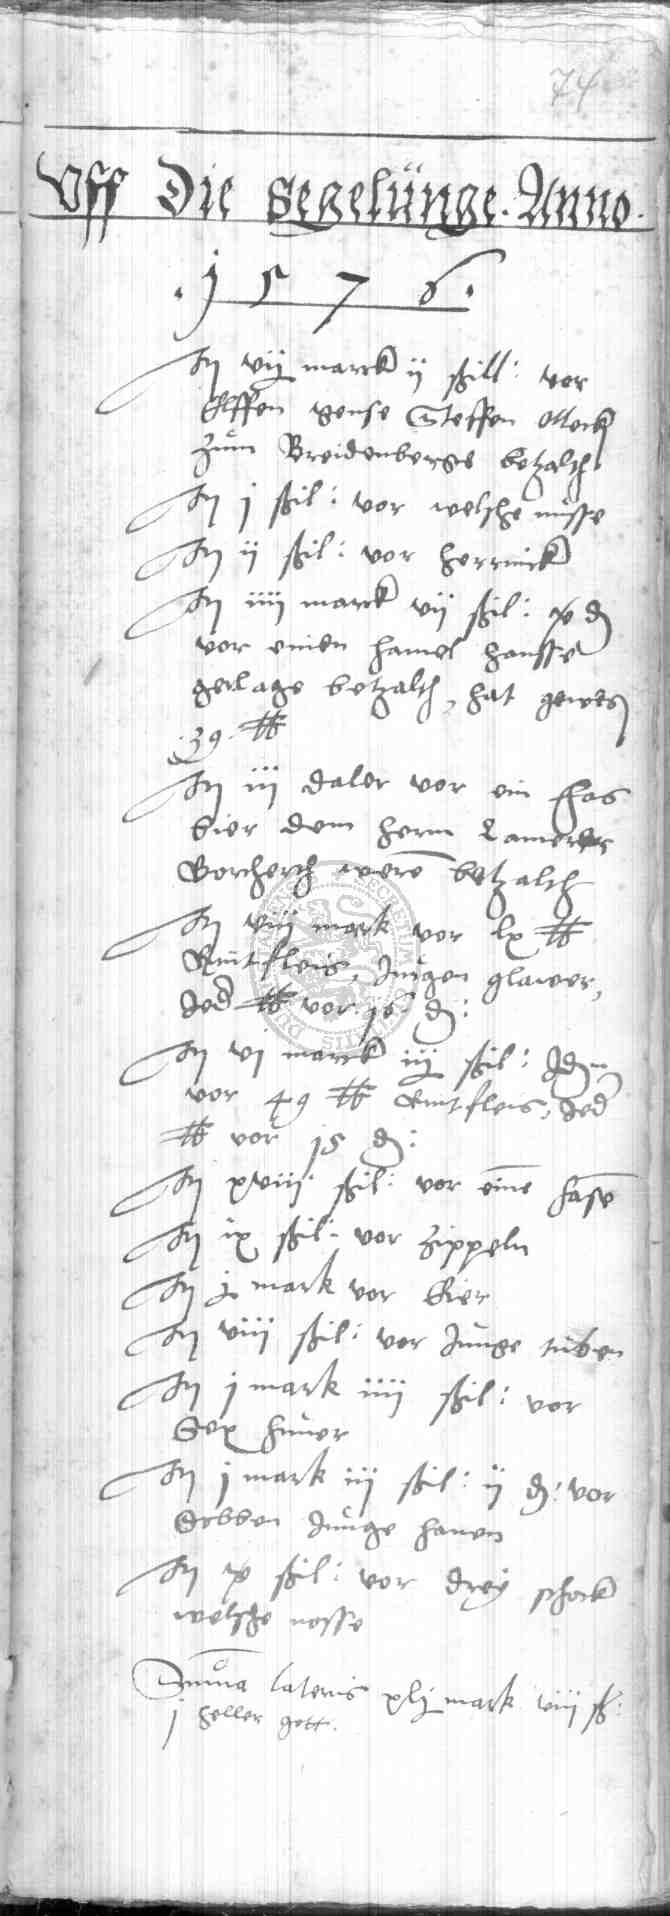 74
Vff Die segelünge. Anno.
.j 5 7 6.
It vij marck ij ßill: vor
Elffen gense Steffen Otteck
zum Breidenberge betzalth
It j ßil: vor welsche nusse
It ij ßil: vor herrinck
It iiij marck vij ßil: x d
vor einen hamel Hansse
gerlage betzalth, hat gewes
39 ℔
It iij daler vor ein fhas
bier dem herrn Camerer
Borcherch were betzalth
It viij mark vor lx ℔
Rintfleis, Jurgen glawer,
Jed ℔ vor 16 d:
It vj marck iij ßil: Idem
vor 49 ℔ Rintfleis, Jed
℔ vor 15 d:
It xviij ßil: vor eine hase
It ix ßil: vor zippeln
It j mark vor bier
It viij ßil: vor Junge tuben
It j mark iiij ßil: vor
Sex huner
It j mark iij ßil: ij d: vor
Sebben Junge hanen
It x ßil: vor drey schock
welsche nosse
Suma lateris xlj mark viij ß:
j heller gott.